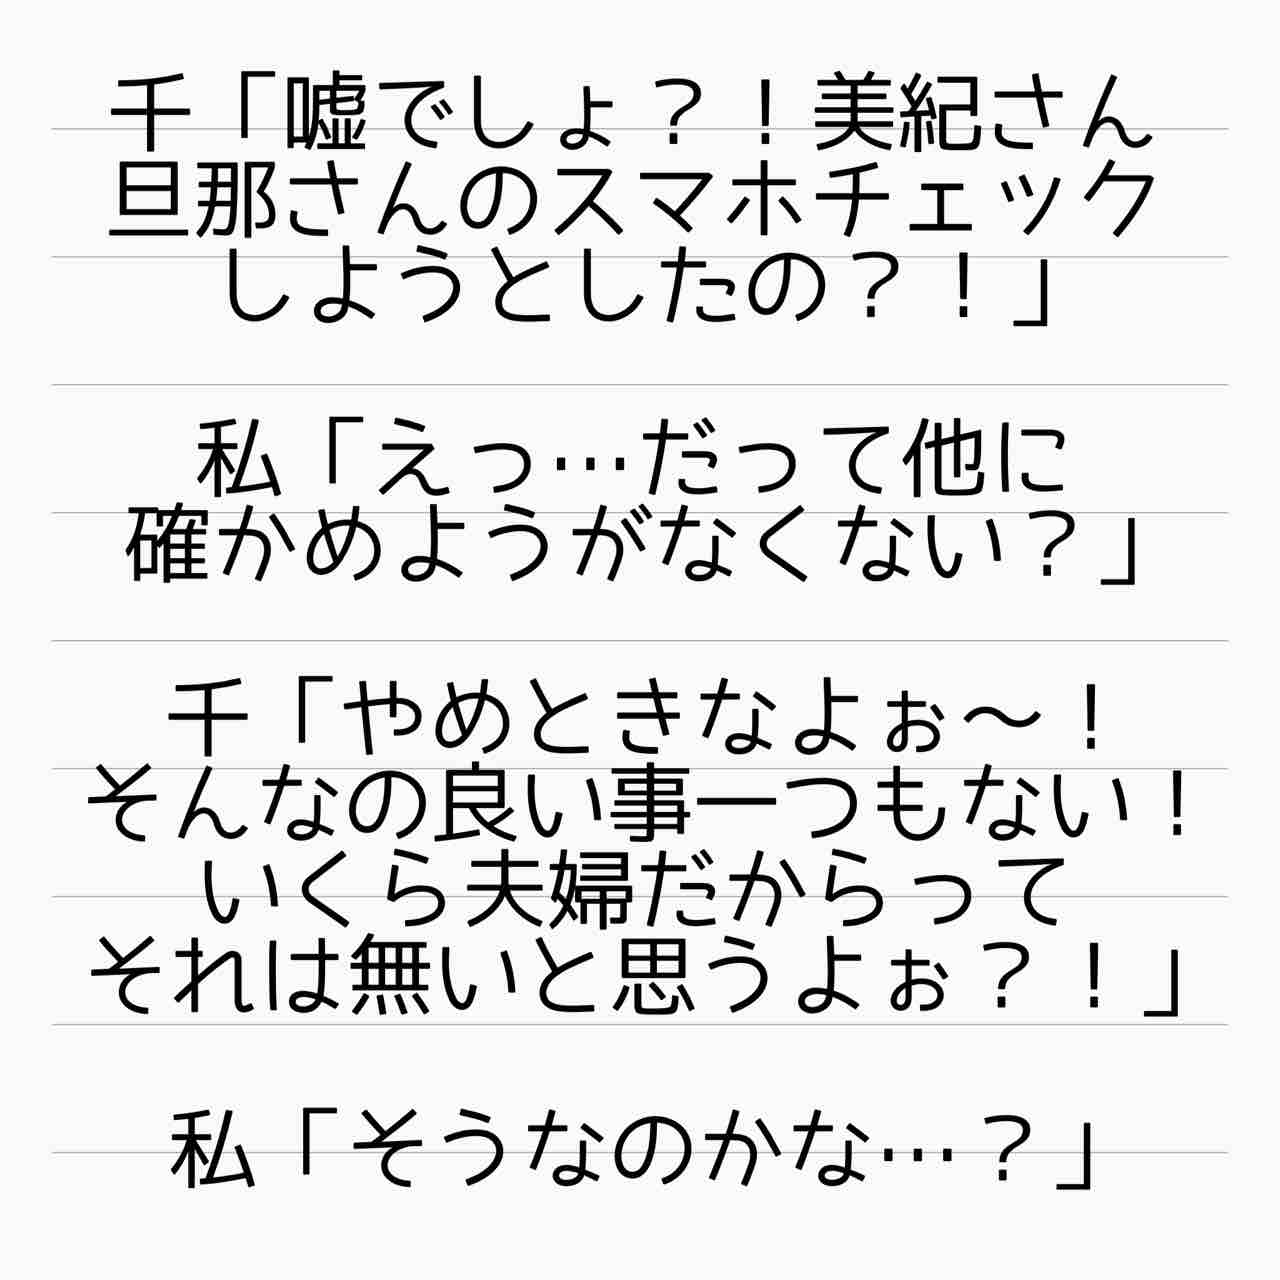 千「嘘でしょ？！美紀さん
旦那さんのスマホチェック
しようとしたの？！」
私「えっ…だって他に
確かめようがなくない？」
千「やめときなよぉ〜！
そんなの良い事一つもない！
いくら夫婦だからって
それは無いと思うよぉ？！」
私「そうなのかな…？」